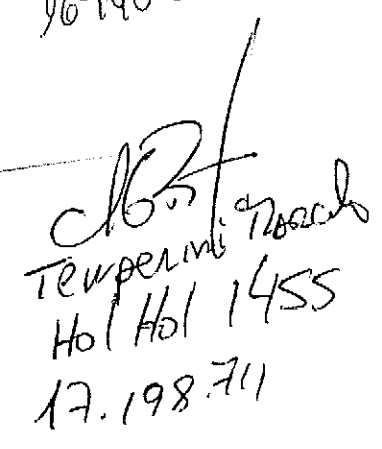 Temperini
Hol Hol 1455
17.198.711